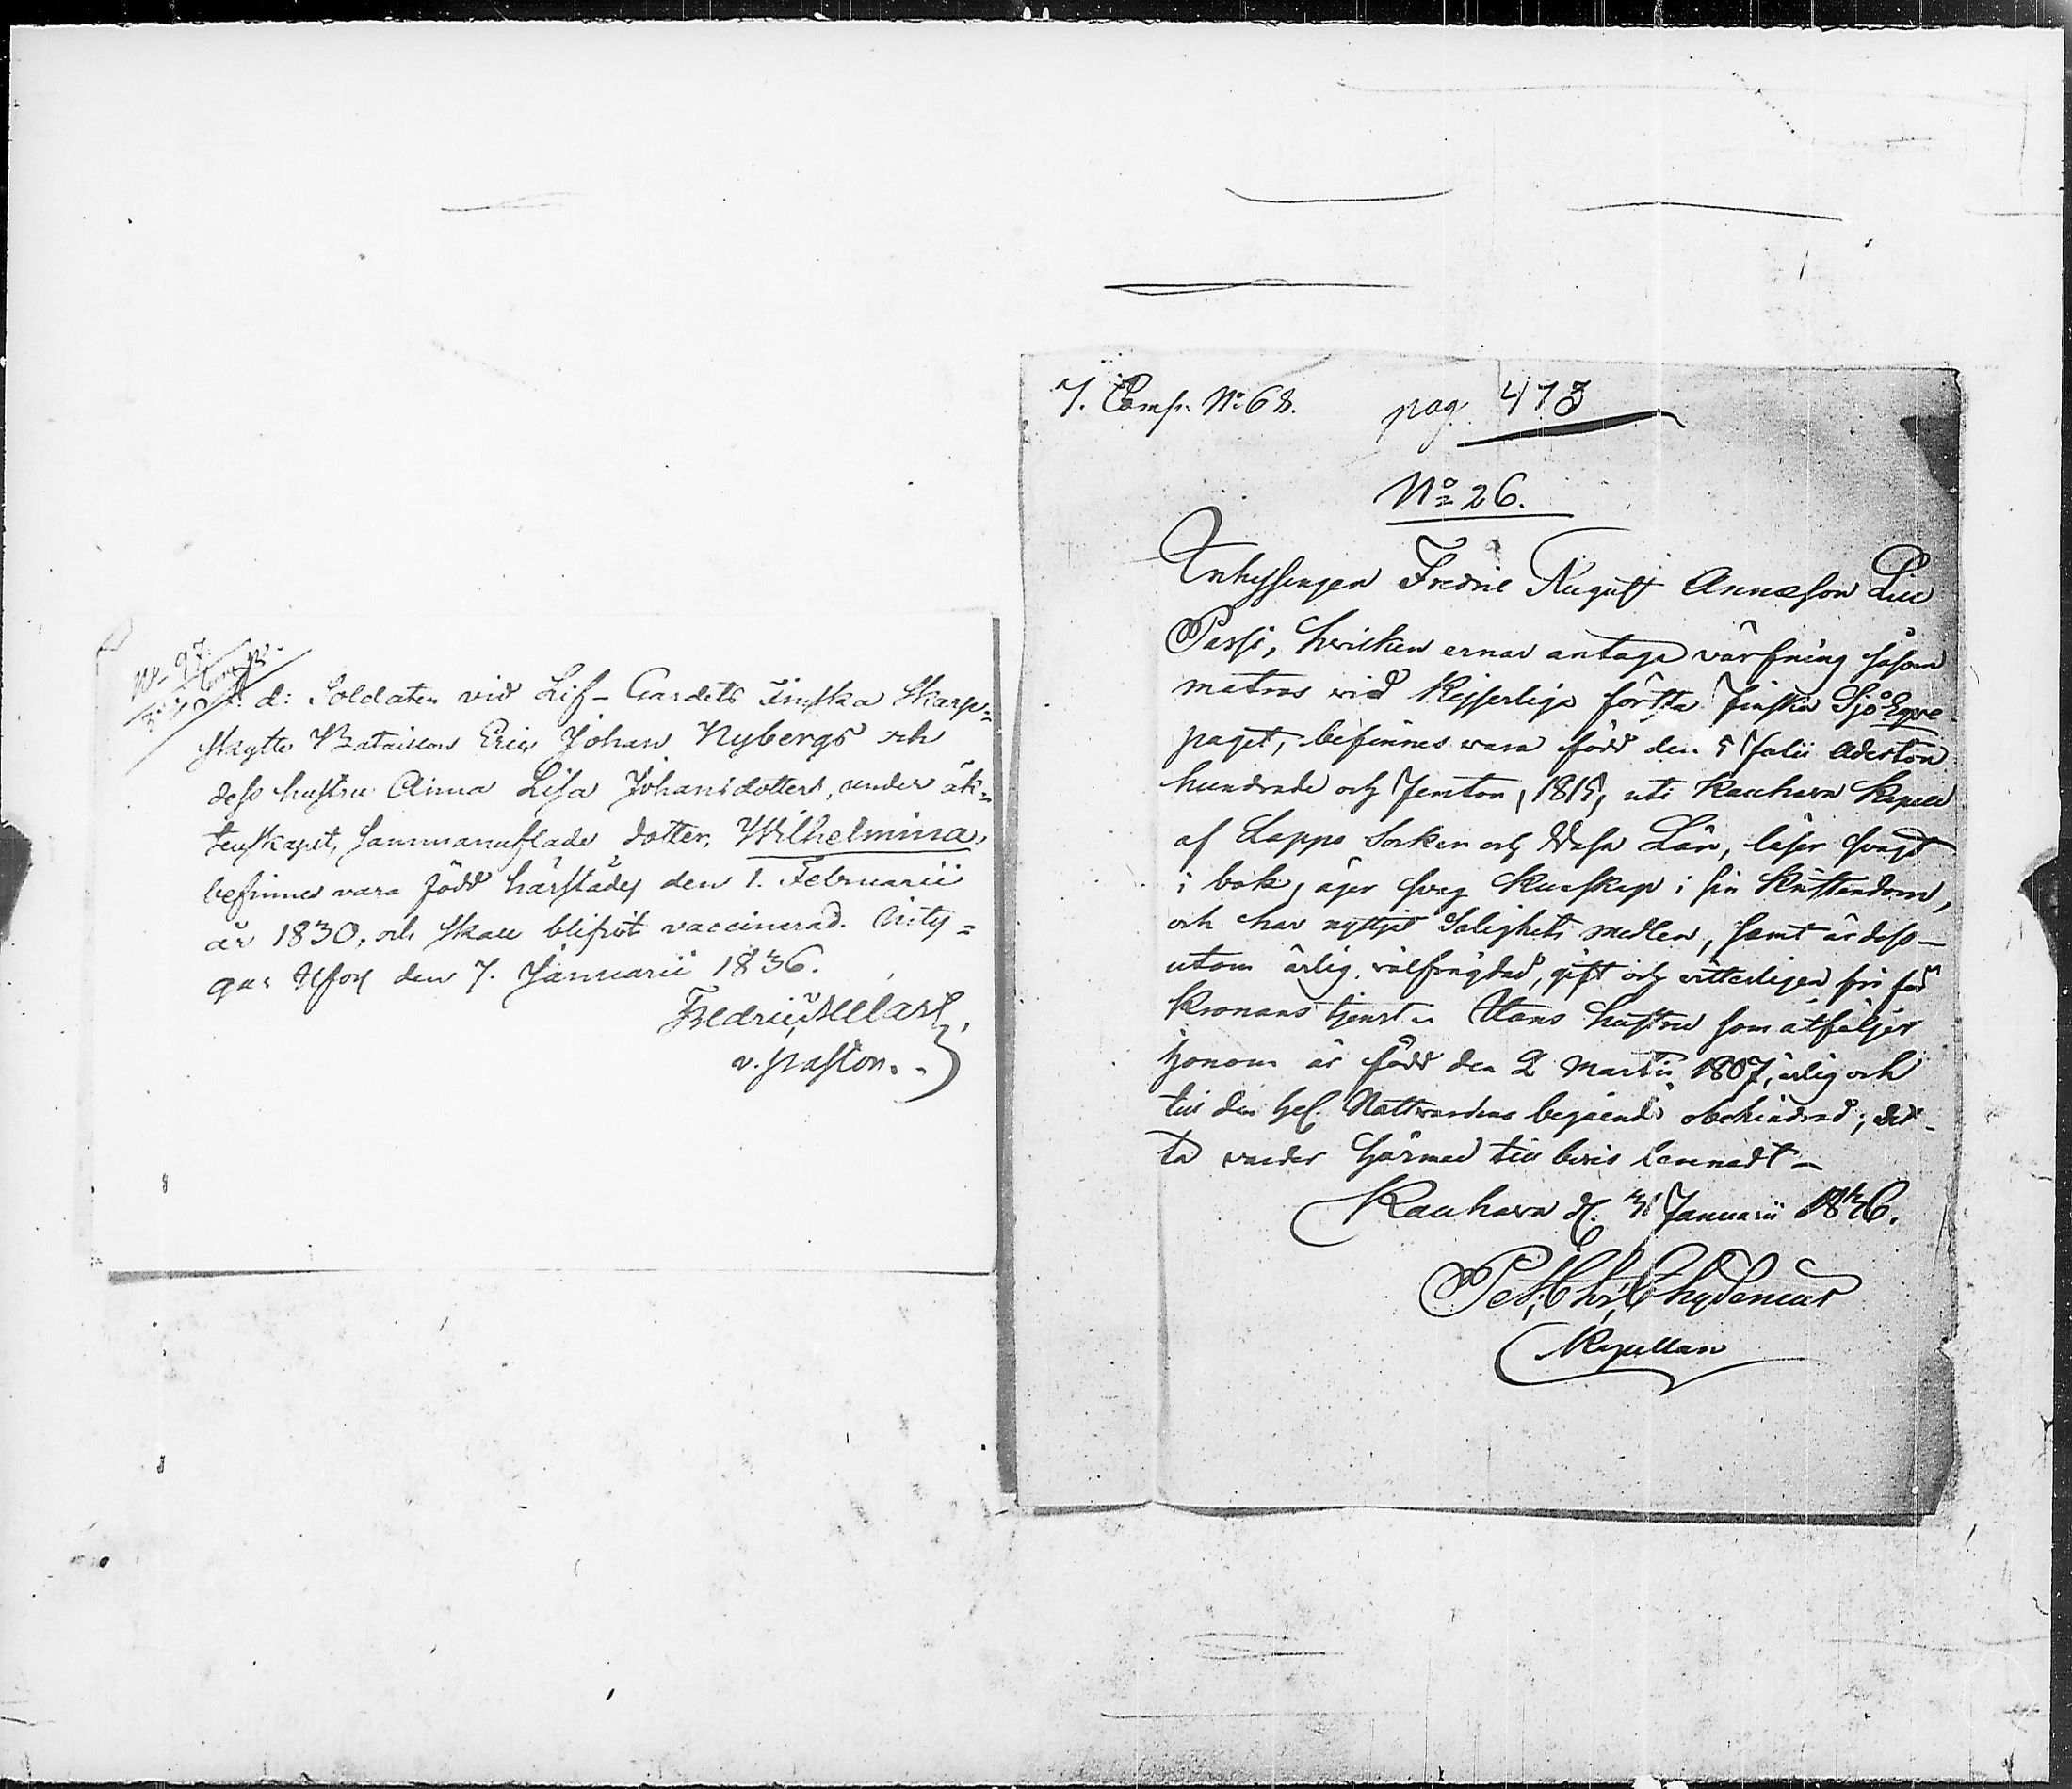 No 97.
f. d: Soldaten vid Lif-Gardets Finska Skarp=
skytte Bataillon Eric Johan Nybergs och
dess hustru Anna Lisa Johansdotters, under äk=
tenskapet, sammanaflade dotter, Wilhelmina,
befinnes vara född härstädes den 1. Februarii
år 1830, och skall blifvit vaccinerad. Bety=
gas den 7. Januarii 1836.
Fredric
v. pastor.
7. Comp. No 68. pag. 473
No 26.
Inhysingen Fredric August Annæson Lill
Passi, hvilken ernar antaga värfning såsom
matros wid Kejserliga första Finska Sjö Eqvi-
paget, befinnes wara född den 5 Julii Aderton
hundrade och femton, 1815, uti Kauhava Kapell
af Lappo Socken och Wasa Län, läser svagt
i bok, äger svag kunskap i sin Kristendom,
och har nyttjat Salighets medlen, samt är dess-
utom ärlig, välfrägdad, gift och vitterligen fri för
Kronans tjenst. Hans hustru som åtföljer
honom är född den 2 Martii 1807, ärlig och
till den hel. Nattvardens begående obehindrad; det-
ta varder härmed till bevis lemnadt -
Kauhava d. 31 Januarii 1836.
Pet. Chr. Chydenius
Kapellan